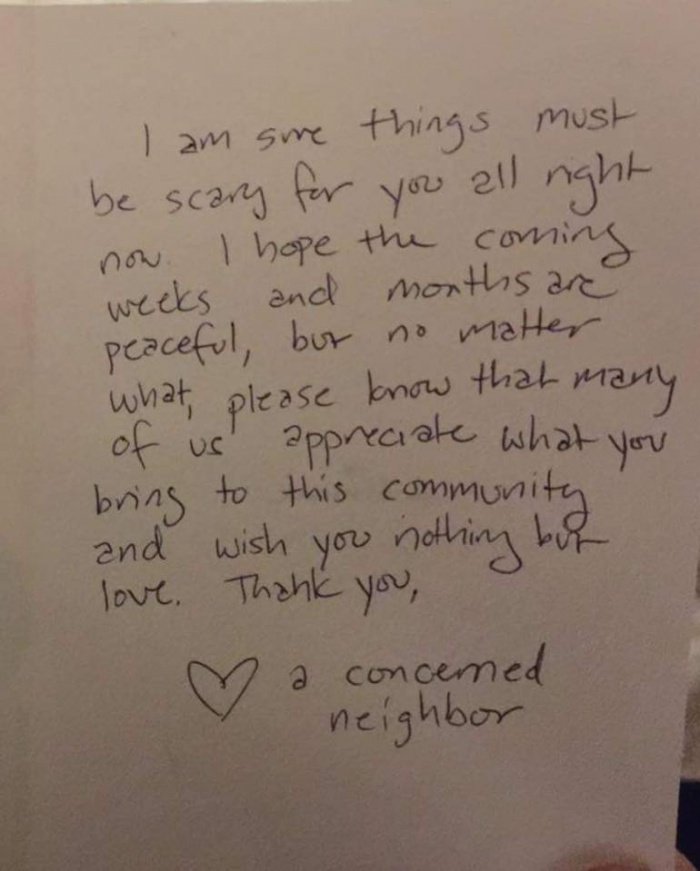 I am sure things must
be scary for you all right
now. I hope the coming
weeks and months are
peaceful, but no matter
what, please know that many
of us appreciate what you
bring to this community
and wish you nothing but
love. Thank you,
♡ a concerned
neighbor